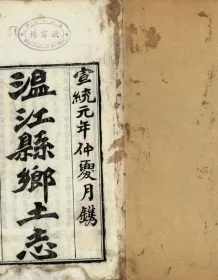 宣統元年仲夏月鐫
溫江縣鄉土志